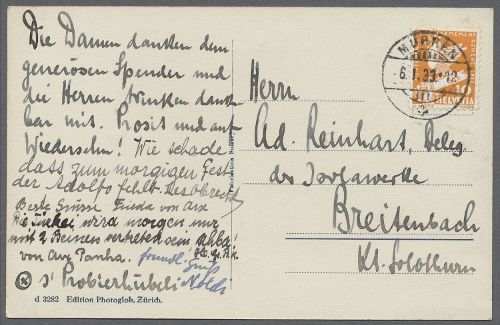 Die Damen danken dem
generösen Spender und
die Herren winken dank-
bar mit. Prosit und auf
Wiedersehn! Wie schade
dass zum morgigen Fest
der Adolfo fehlt.
Beste Grüsse Frieda von Arx
Die Türkei wird morgen nur
mit 2 Beinen vertreten sein
von freundl. Gruss
s' Probierhübeli Noldi
d 3282 Edition Photoglob, Zürich.
MÜRREN
HELVETIA
Herrn
Ad. Reinhart, Deleg.
der Isolawerke
Breitenbach
Kt. Solothurn